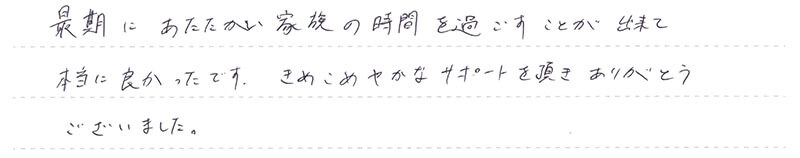 最期に あたたかい 家族の時間を過ごすことが 出来て
本当に良かったです. きめこめやかなサポートを頂き ありがとう
ございました。